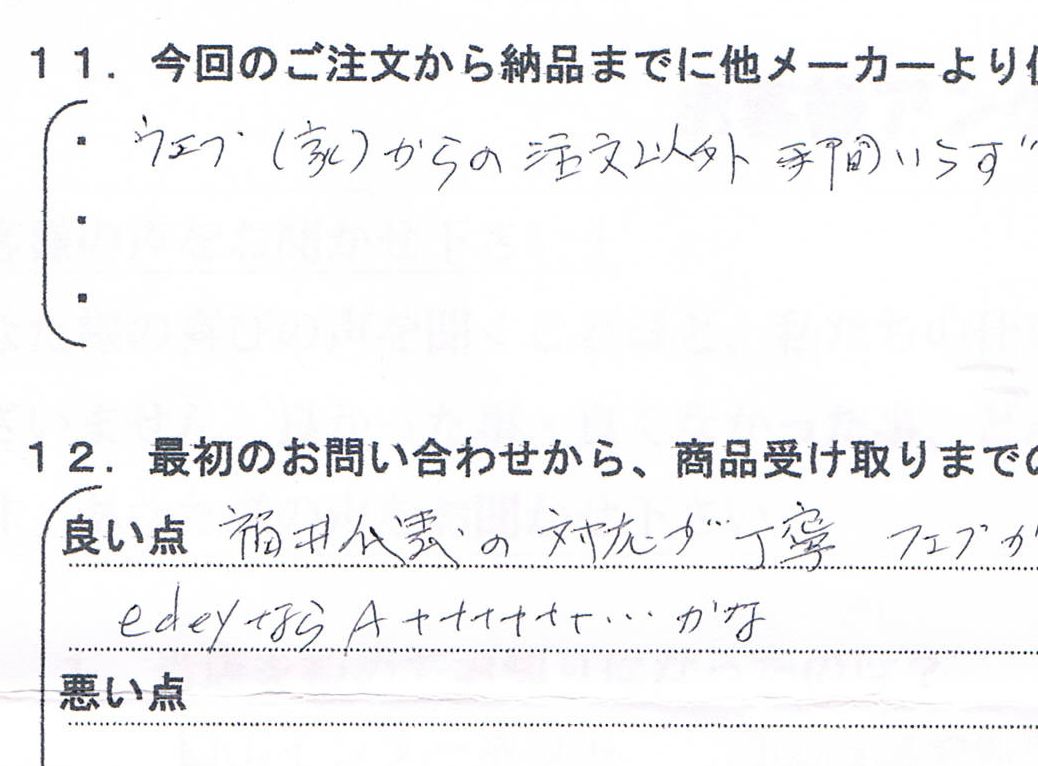 １１．今回のご注文から納品までに他メーカーより
・ ウェブ（家）からの注文以外 手間いらず
・
・
１２．最初のお問い合わせから、商品受け取りまでの
良い点 福井代表の対応が丁寧 フェブか
edeyなら A+++++++…かな
悪い点